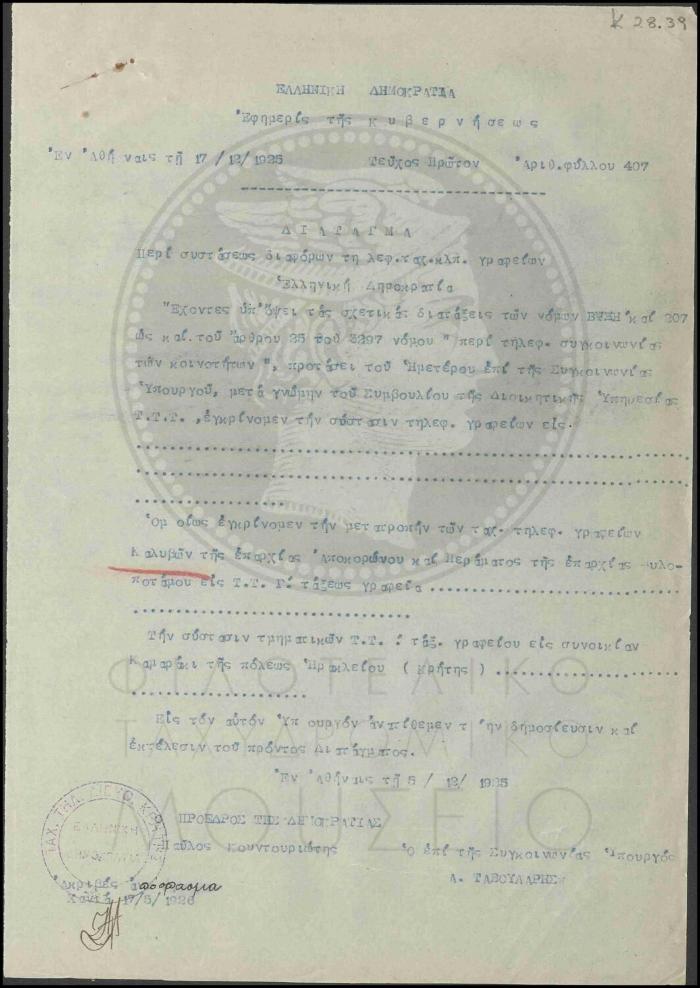 K 28.39
ΕΛΛΗΝΙΚΗ ΔΗΜΟΚΡΑΤΙΑ
Ἐφημερίς τῆς κ υ β ε ρ ν ή σ ε ω ς
Ἐν Ἀθή ναις τῆ 17/12/1925 Τεῦχος Πρῶτον Ἀριθ.φύλλου 407
Δ Ι Α Τ Α Γ Μ Α
Περί συστάσεως διαφόρων τη λεφ.ταχ.κλπ. γραφείων
Ἑλληνική Δημοκρατία
Ἔχοντες ὑπ'ὄψει τάς σχετικάς διατάξεις τῶν νόμων ΒΨΜΗ καί 207
ὡς καί τοῦ ἄρθρου 25 τοῦ 3297 νόμου " περί τηλεφ. συγκοινωνίας
τῶν κοινοτήτων ", προτάσει τοῦ Ἡμετέρου ἐπί τῆς Συγκοινωνίας
Ὑπουργοῦ, μετά γνώμην τοῦ Συμβουλίου τῆς Διοικητικῆς Ὑπηρεσίας
Τ.Τ.Τ. ,ἐγκρίνομεν τήν σύστασιν τηλεφ. γραφείων εἰς.
Ὁμ οίως ἐγκρίνομεν τήν μετατροπήν τῶν ταχ. τηλεφ. γραφείων
Καλυβῶν τῆς ἐπαρχίας Ἀποκορώνου καί Περάματος τῆς ἐπαρχίας υλο-
ποτάμου εἰς Τ.Τ. Γ: τάξεως γραφεῖα
Τήν σύστασιν τμηματικῶν Τ.Τ. : τάξ. γραφείου εἰς συνοικίαν
Καμαράκι τῆς πόλεως Ἡρακλείου ( Κρήτης )
Εἰς τόν αὐτόν Ὑπ ουργόν ἀνατίθεμεν τ ήν δημοσίευσιν καί
ἐκτέλεσιν τοῦ πρόντος Διατάγματος.
Ἐν Ἀθήναις τῆ 5/ 12/ 1925
ΠΡΟΕΔΡΟΣ ΤΗΣ ΔΗΜΟΚΡΑΤΙΑΣ
Παῦλος Κουντουριώτης Ὁ ἐπί τῆς Συγκοινωνίας Ὑπουργός
Α. ΤΑΒΟΥΛΑΡΗΣ
Ἀκριβές ἀπόσπασμα
Χανιά 17/5/1926
ΕΛΛΗΝΙΚΗ
ΔΗΜΟΚΡΑΤΙΑ
ΦΙΛΟΤΕΛΙΚΟ
ΤΑΧΥΔΡΟΜΙΚΟ
ΜΟΥΣΕΙΟ